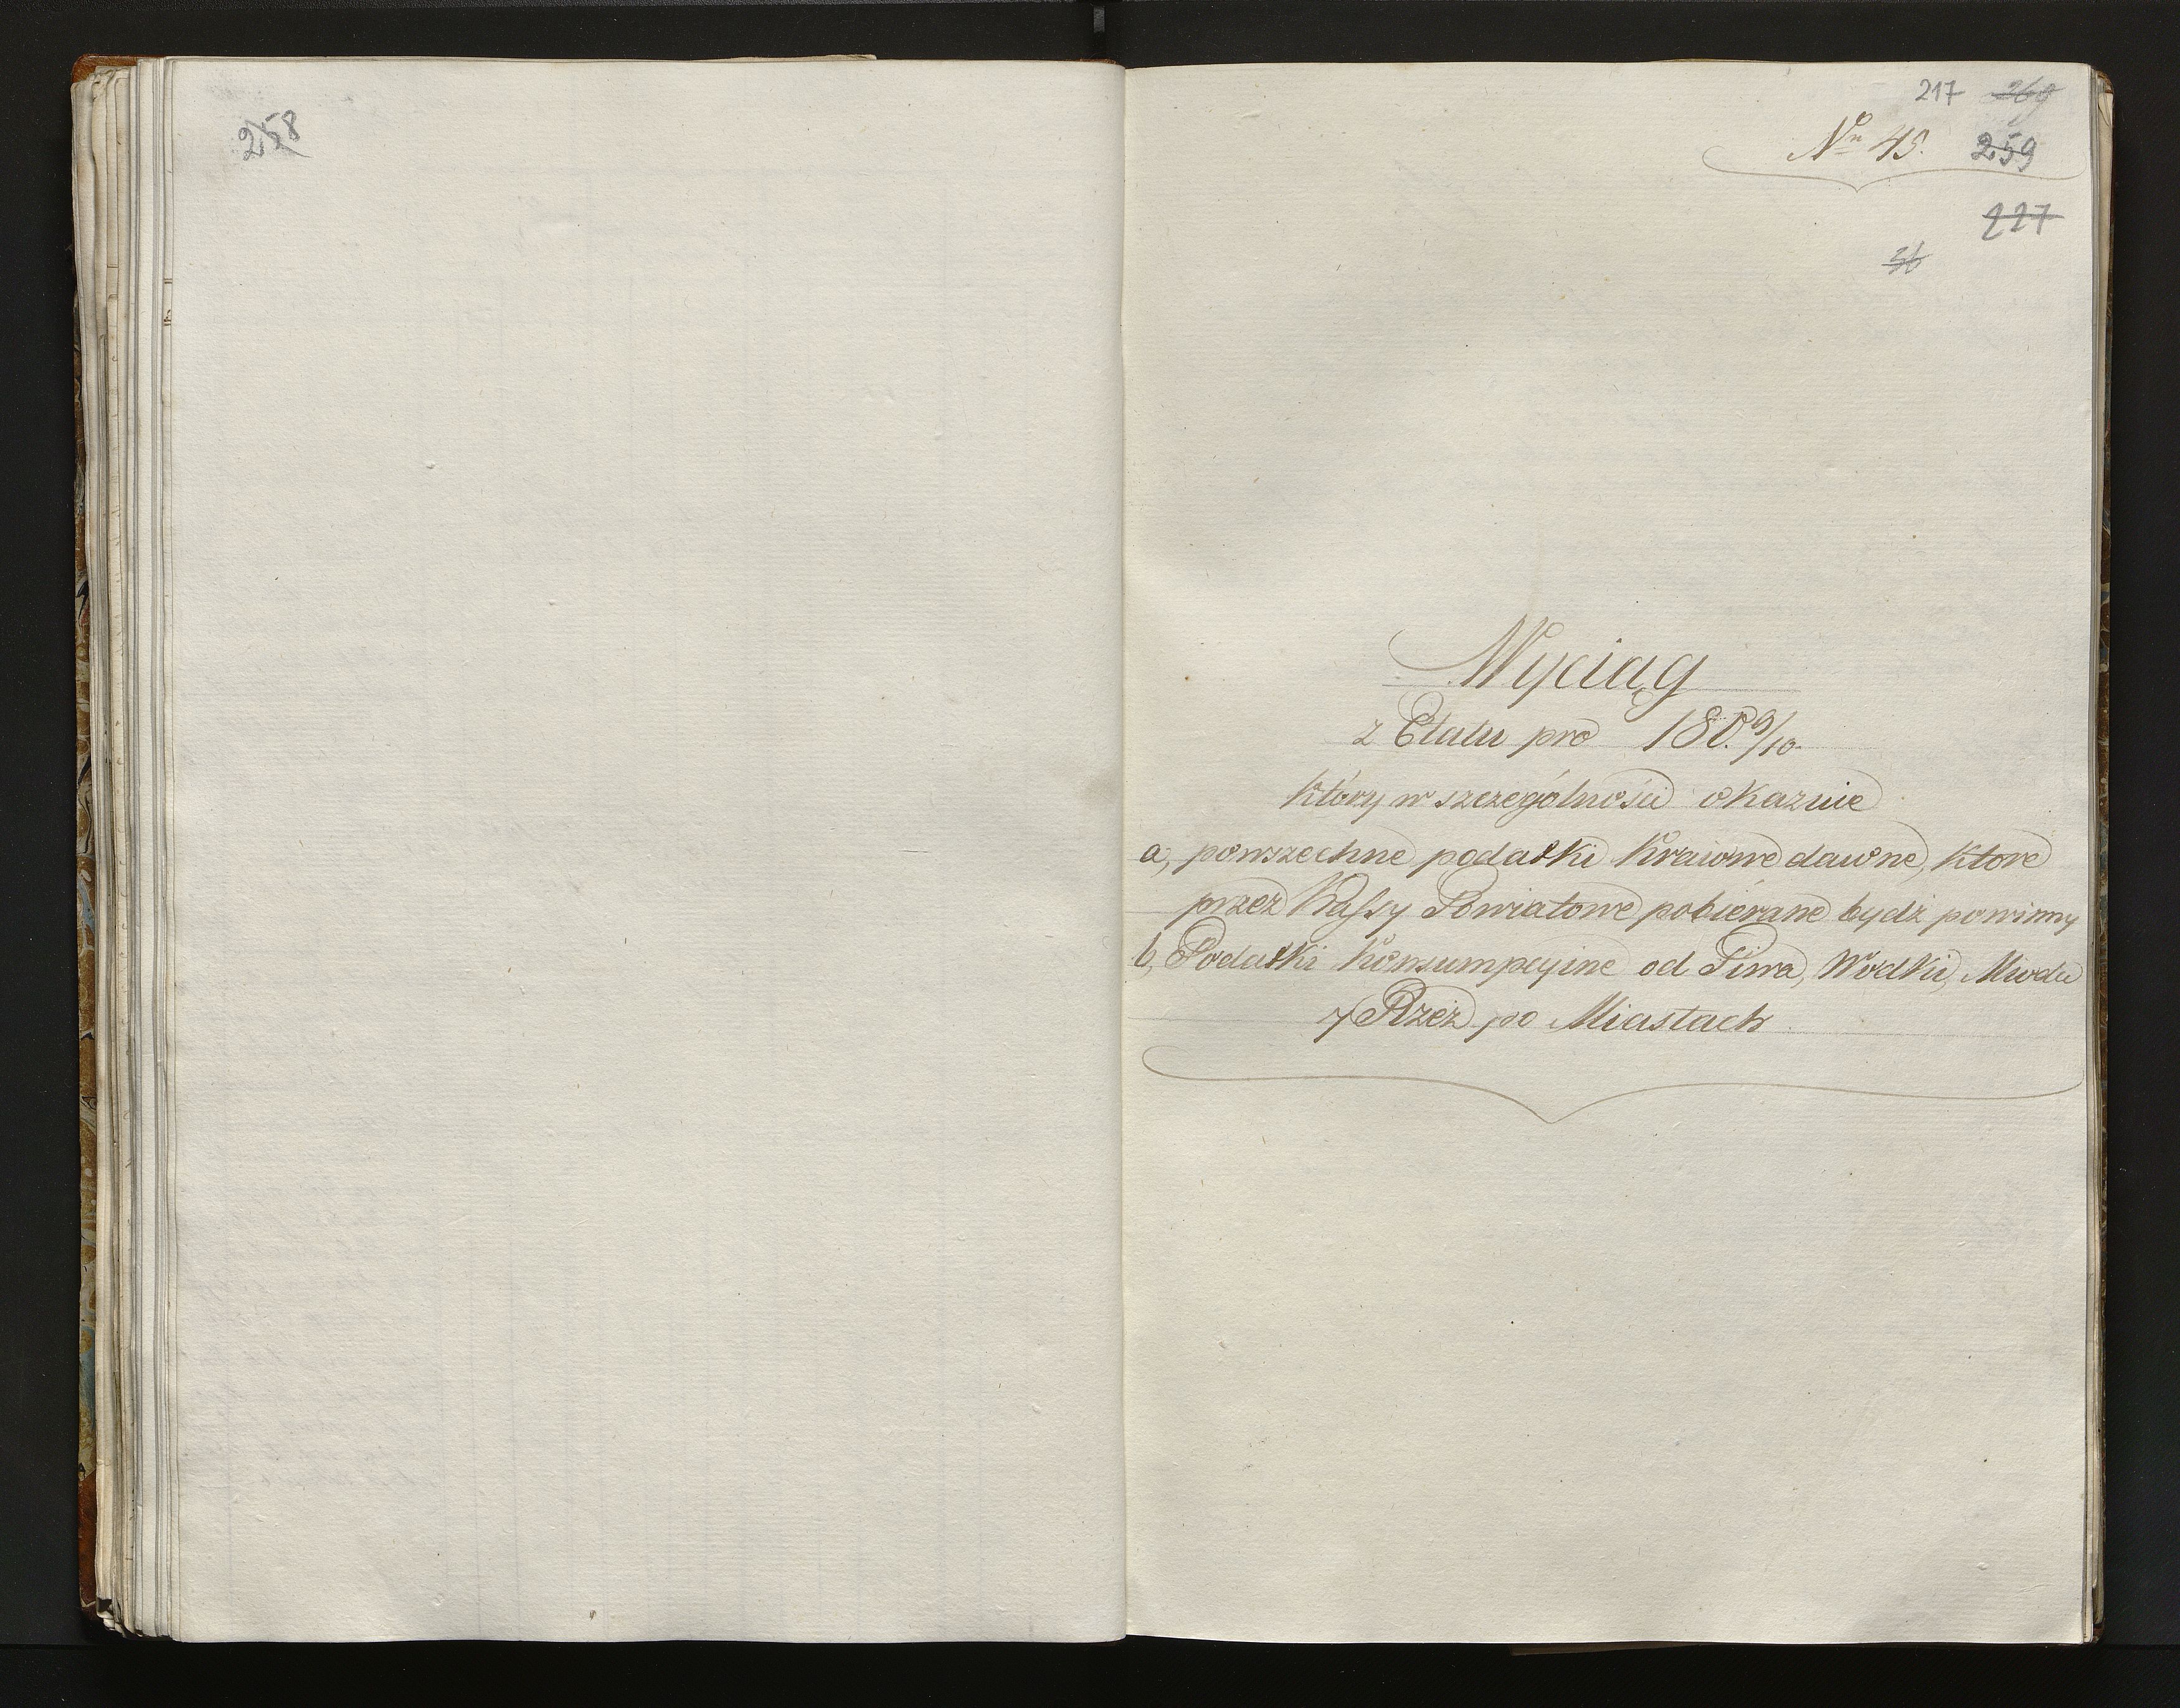 258
217 269
Nro 45. 259
227
36
Wyciąg
z Etatu pro 180 9/10.
który w szczególności okazuie
a, powszechne podatki kraiowe dawne, ktore
przez Kassy Powiatowe pobiérane bydź powinny
b, Podatki konsumpcyine od Piwa, Wodki, Miodu
y Rzezi po Miastach